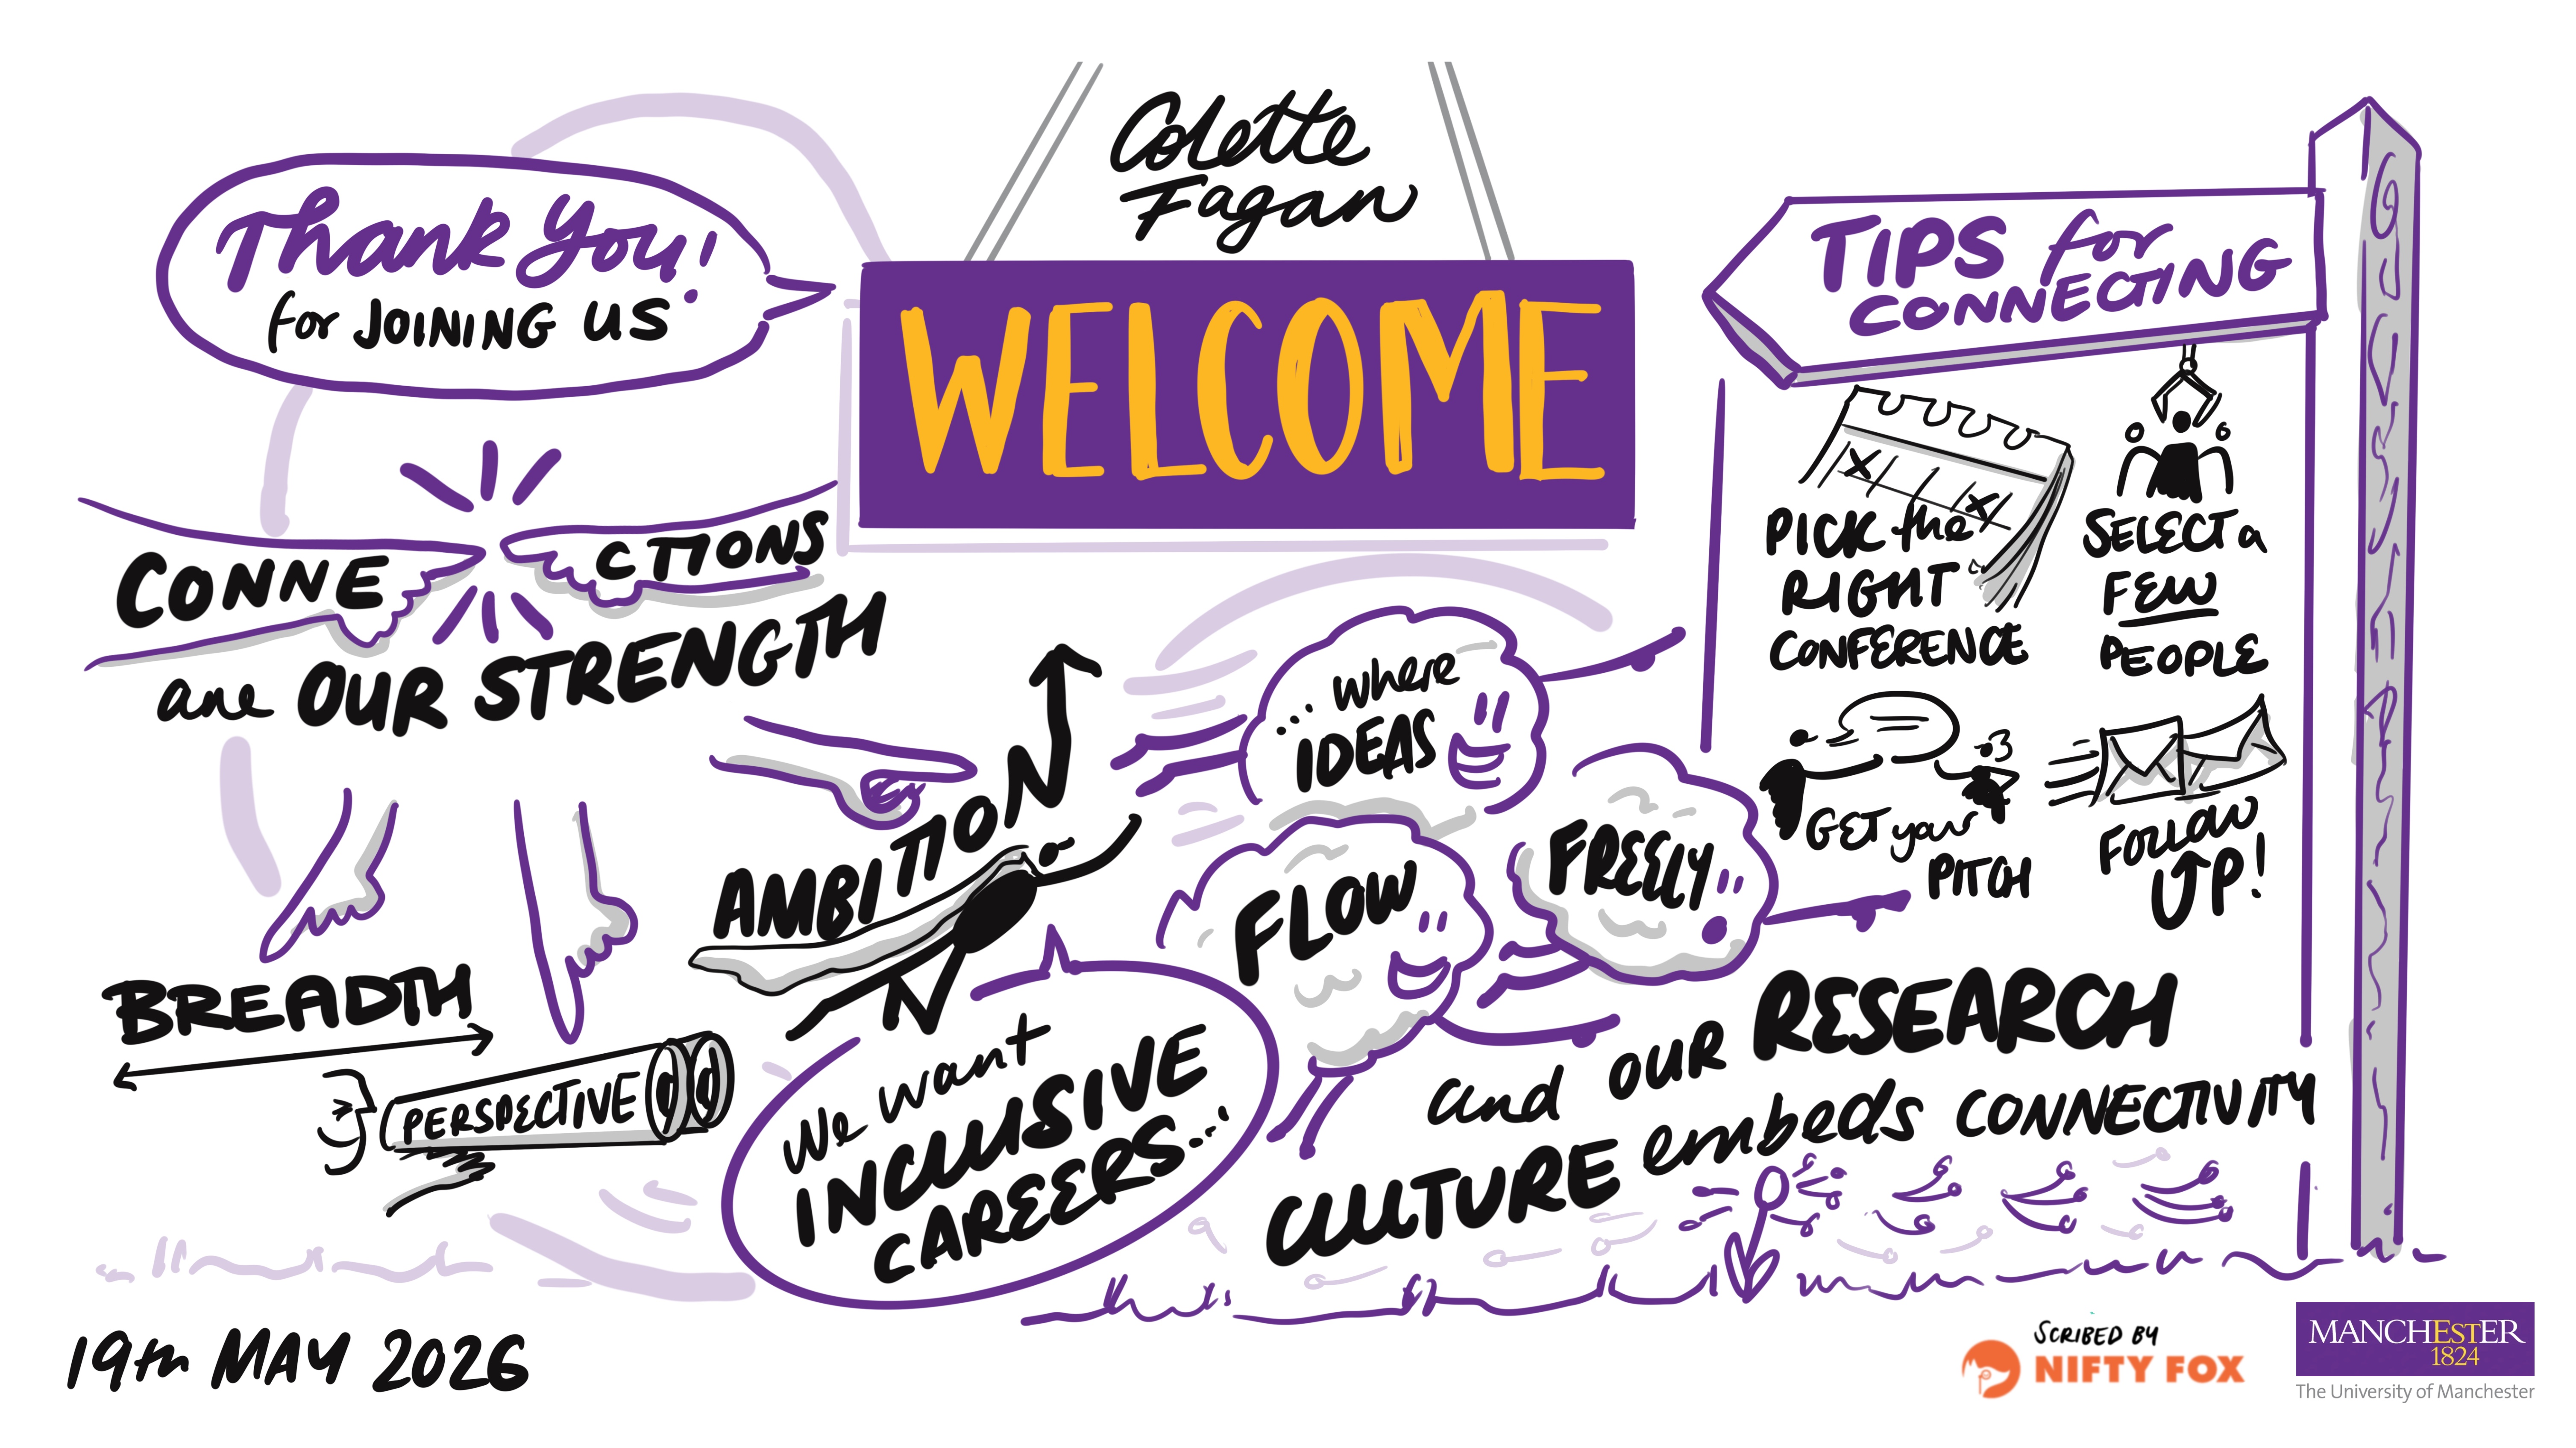 Colette
Fagan
WELCOME
Thank You!
for JOINING US
CONNECTIONS
are OUR STRENGTH
BREADTH
PERSPECTIVE
AMBITION
We want
INCLUSIVE
CAREERS...
...where
IDEAS
FLOW
FREELY
and OUR RESEARCH
CULTURE embeds CONNECTIVITY
TIPS for
CONNECTING
PICK the
RIGHT
CONFERENCE
SELECT a
FEW
PEOPLE
GET your
PITCH
FOLLOW
UP!
19th MAY 2026
SCRIBED BY
NIFTY FOX
MANCHESTER
1824
The University of Manchester